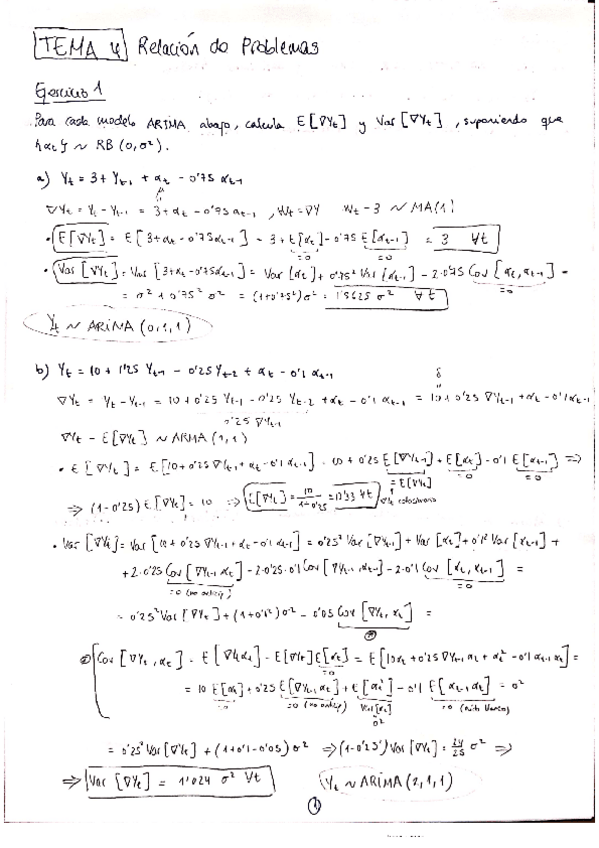 TEMA 4 Relación de Problemas
Ejercicio 1
Para cada modelo ARIMA abajo, calcula E[∇Yt] y Var[∇Yt], suponiendo que
{αt} ~ RB(0,σ²).
a) Yt = 3 + Yt-1 + αt - 0'75 αt-1
∇Yt = Yt - Yt-1 = 3 + αt - 0'75 αt-1 , Wt = ∇Y Wt - 3 ~ MA(1)
• E[∇Yt] = E[3+αt-0'75αt-1] = 3 + E[αt] - 0'75 E[αt-1] = 3 ∀t
=0 =0
• Var[∇Yt] = Var[3+αt-0'75αt-1] = Var[αt] + 0'75² Var[αt-1] - 2·0'75 Cov[αt, αt-1] =
=0
= σ² + 0'75² σ² = (1+0'75²)σ² = 1'5625 σ² ∀t
Yt ~ ARIMA(0,1,1)
b) Yt = 10 + 1'25 Yt-1 - 0'25 Yt-2 + αt - 0'1 αt-1
δ
∇Yt = Yt - Yt-1 = 10 + 0'25 Yt-1 - 0'25 Yt-2 + αt - 0'1 αt-1 = 10 + 0'25 ∇Yt-1 + αt - 0'1αt-1
0'25 ∇Yt-1
∇Yt - E[∇Yt] ~ ARMA(1,1)
• E[∇Yt] = E[10+0'25∇Yt-1+αt-0'1αt-1] = 10 + 0'25 E[∇Yt-1] + E[αt] - 0'1 E[αt-1] ⇒
= E[∇Yt] =0 =0
⇒ (1-0'25) E[∇Yt] = 10 ⇒ E[∇Yt] = 10/1-0'25 = 13'33 ∀t
• Var[∇Yt] = Var[10+0'25∇Yt-1+αt-0'1αt-1] = 0'25² Var[∇Yt-1] + Var[αt] + 0'1² Var[αt-1] +
+ 2·0'25 Cov[∇Yt-1, αt] - 2·0'25·0'1 Cov[∇Yt-1, αt-1] - 2·0'1 Cov[αt, αt-1] =
=0 (no anticip) =0
= 0'25² Var[∇Yt] + (1+0'1²)σ² - 0'05 Cov[∇Yt, αt] =
Cov[∇Yt, αt] = E[∇Ytαt] - E[∇Yt]E[αt] = E[10αt + 0'25∇Yt-1 αt + αt² - 0'1 αt-1 αt] =
=0
= 10 E[αt] + 0'25 E[∇Yt-1, αt] + E[αt²] - 0'1 E[αt-1, αt] = σ²
=0 =0 (no anticip) Var[αt] =0 (ruido blanco)
σ²
= 0'25² Var[∇Yt] + (1+0'1-0'05)σ² ⇒ (1-0'25²) Var[∇Yt] = 24/25 σ² ⇒
⇒ Var[∇Yt] = 1'024 σ² ∀t Yt ~ ARIMA(2,1,1)
1